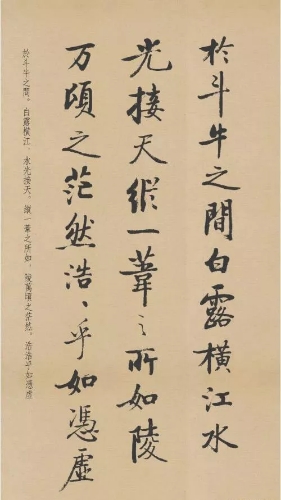 於斗牛之間白露橫江水
光接天縱一葦之所如陵
万頃之茫然浩〻乎如憑虛
於斗牛之間。白露橫江，水光接天。縱一葦之所如，凌萬頃之茫然。浩浩乎如憑虛